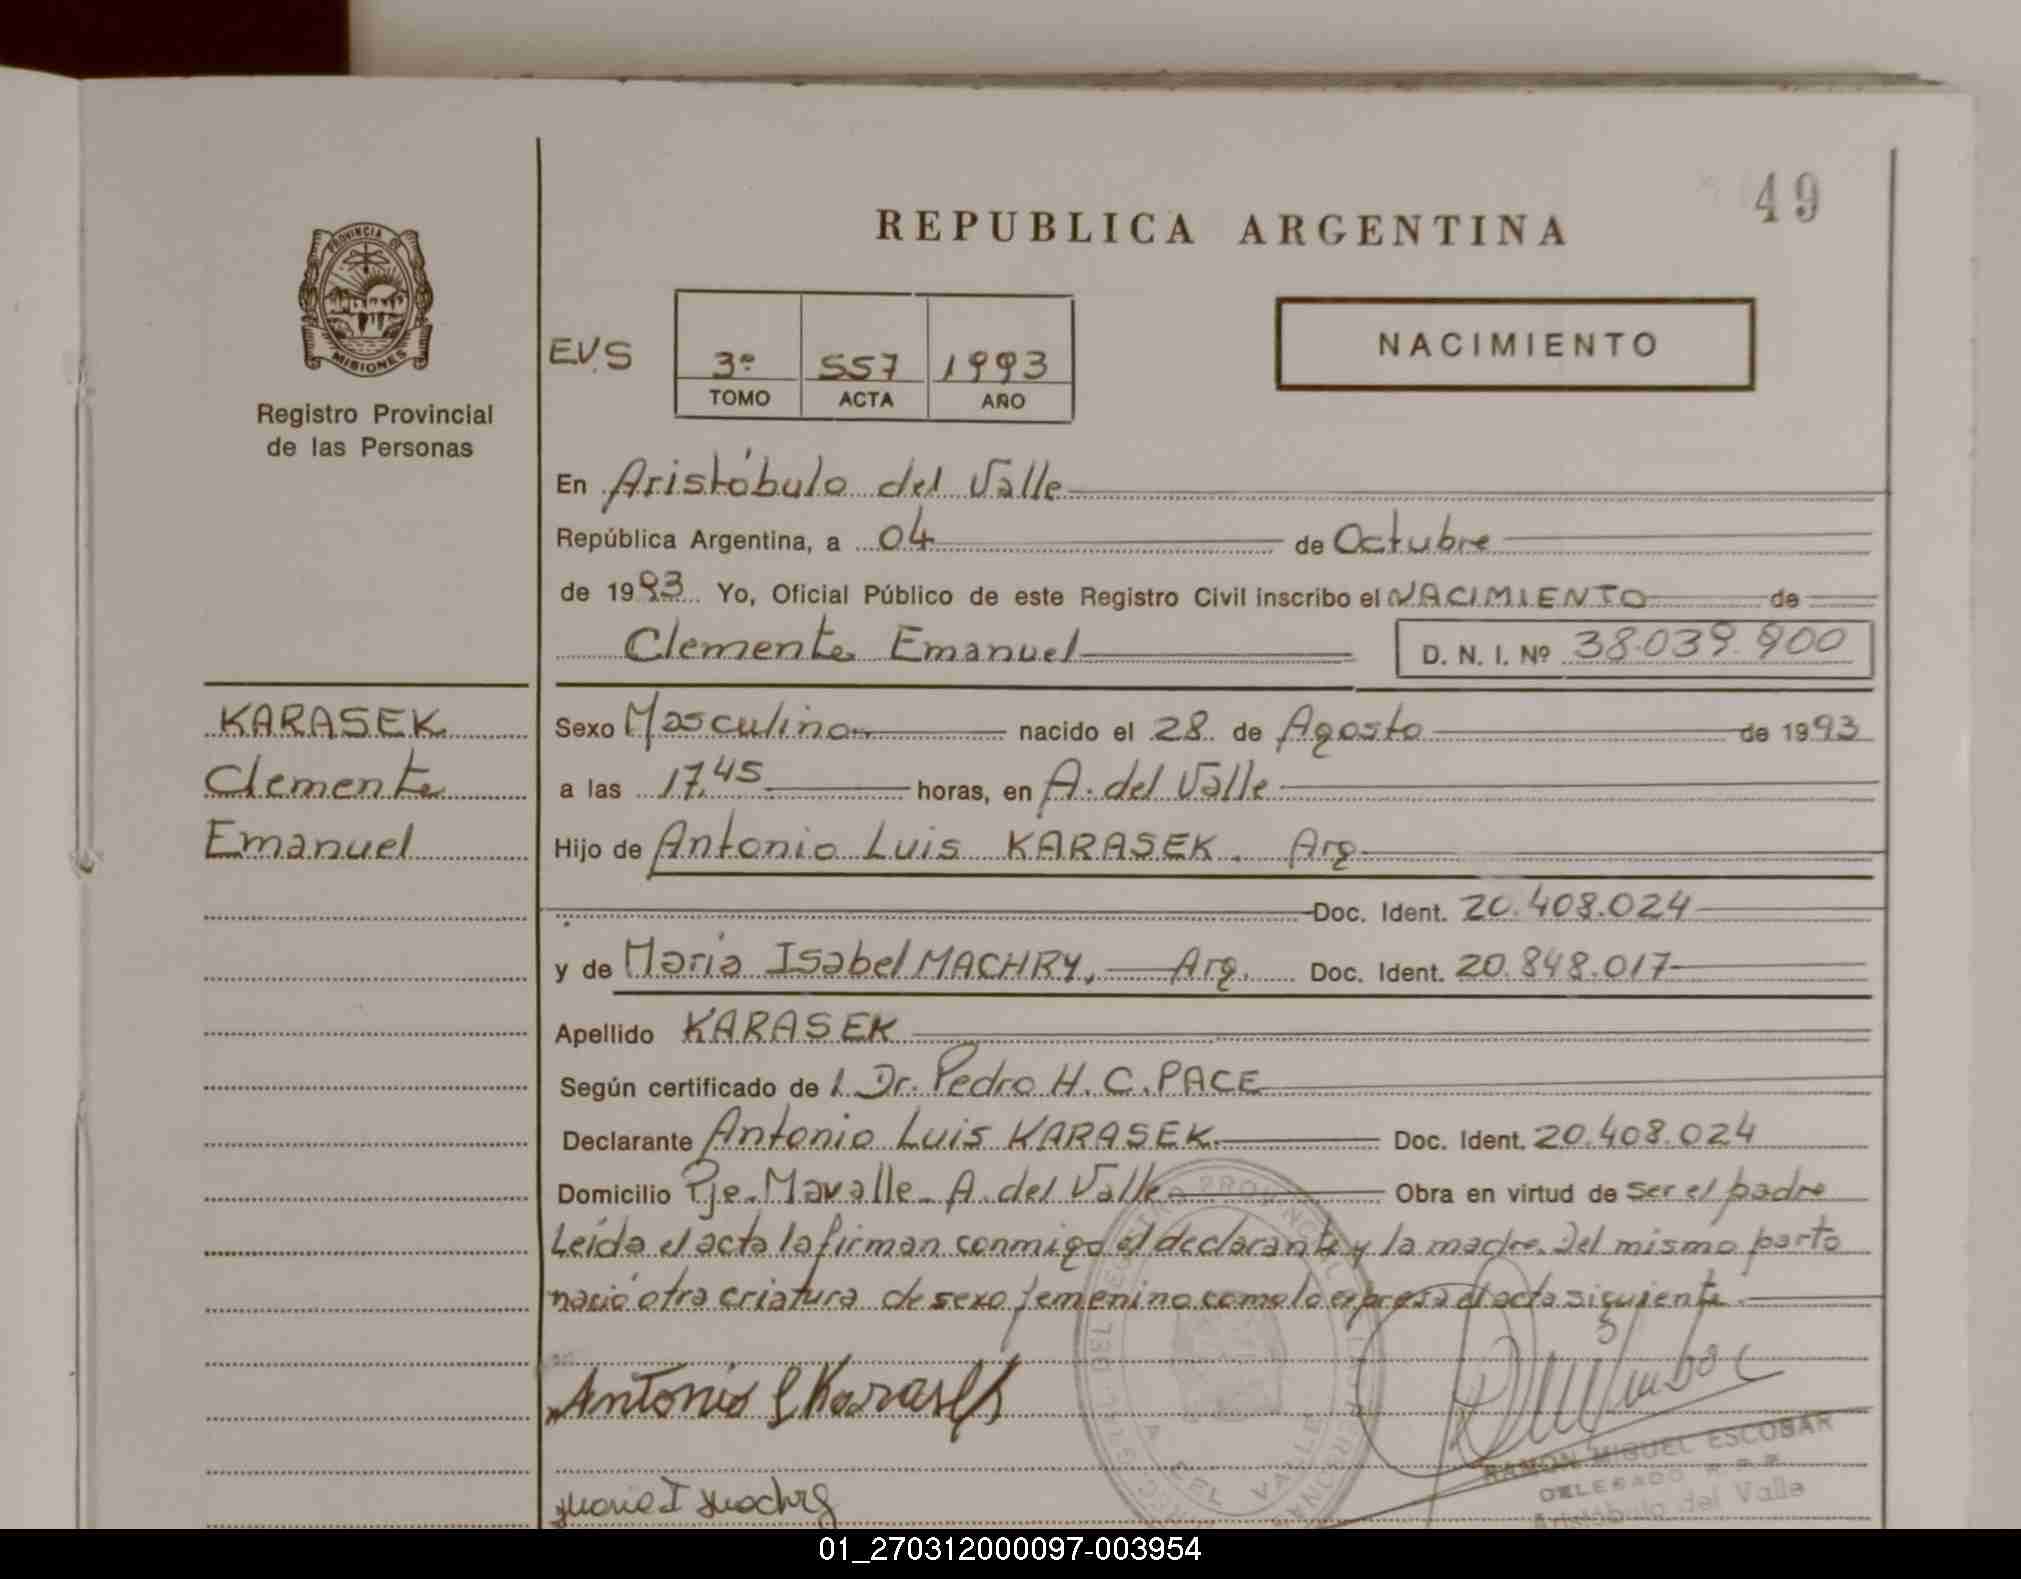 49
REPUBLICA ARGENTINA
PROVINCIA DE
MISIONES
Registro Provincial
de las Personas
EVS
3º 557 1993
TOMO ACTA AÑO
NACIMIENTO
En Aristóbulo del Valle
República Argentina, a 04 de Octubre
de 1993 Yo, Oficial Público de este Registro Civil inscribo el NACIMIENTO de
Clemente Emanuel D. N. I. Nº 38.039.900
KARASEK
Clemente
Emanuel
Sexo Masculino nacido el 28 de Agosto de 1993
a las 17,45 horas, en A. del Valle
Hijo de Antonio Luis KARASEK. Arg.
Doc. Ident. 20.408.024
y de Maria Isabel MACHRY, Arg. Doc. Ident. 20.848.017
Apellido KARASEK
Según certificado de l Dr. Pedro H. C. PACE
Declarante Antonio Luis KARASEK. Doc. Ident. 20.408.024
Domicilio Pje. Mavalle. A. del Valle Obra en virtud de Ser el padre
Leída el acta la firman conmigo el declarante y la madre. Del mismo parto
nació otra criatura de sexo femenino como lo expresa el acta siguiente.
Antonio L Karasek
Maria I Machry
RAMON MIGUEL ESCOBAR
DELEGADO R. P. P.
Aristóbulo del Valle
01_270312000097-003954